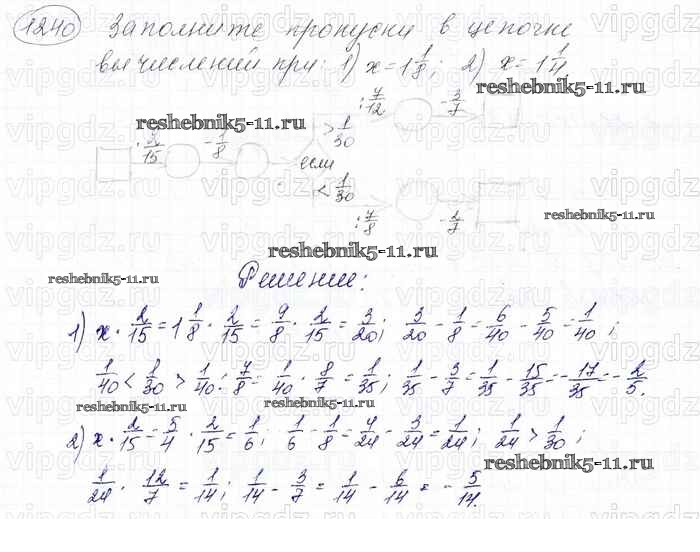 1240 Заполните пропуски в цепочке
вычислений при: 1) x = 1 1/8; 2) x = 1 1/4
: 7/12 - 3/7
reshebnik5-11.ru
· 2/15 - 1/8 > 1/30
если
< 1/30
reshebnik5-11.ru
: 7/8 - 2/7
reshebnik5-11.ru
Решение:
reshebnik5-11.ru
1) x · 2/15 = 1 1/8 · 2/15 = 9/8 · 2/15 = 3/20; 3/20 - 1/8 = 6/40 - 5/40 = 1/40;
1/40 < 1/30 > 1/40 : 7/8 = 1/40 · 8/7 = 1/35; 1/35 - 3/7 = 1/35 - 15/35 = - 17/35 = - 2/5.
reshebnik5-11.ru reshebnik5-11.ru
2) x · 2/15 = 5/4 · 2/15 = 1/6; 1/6 - 1/8 = 4/24 - 3/24 = 1/24; 1/24 > 1/30;
reshebnik5-11.ru
1/24 · 12/7 = 1/14; 1/14 - 3/7 = 1/14 - 6/14 = - 5/14.